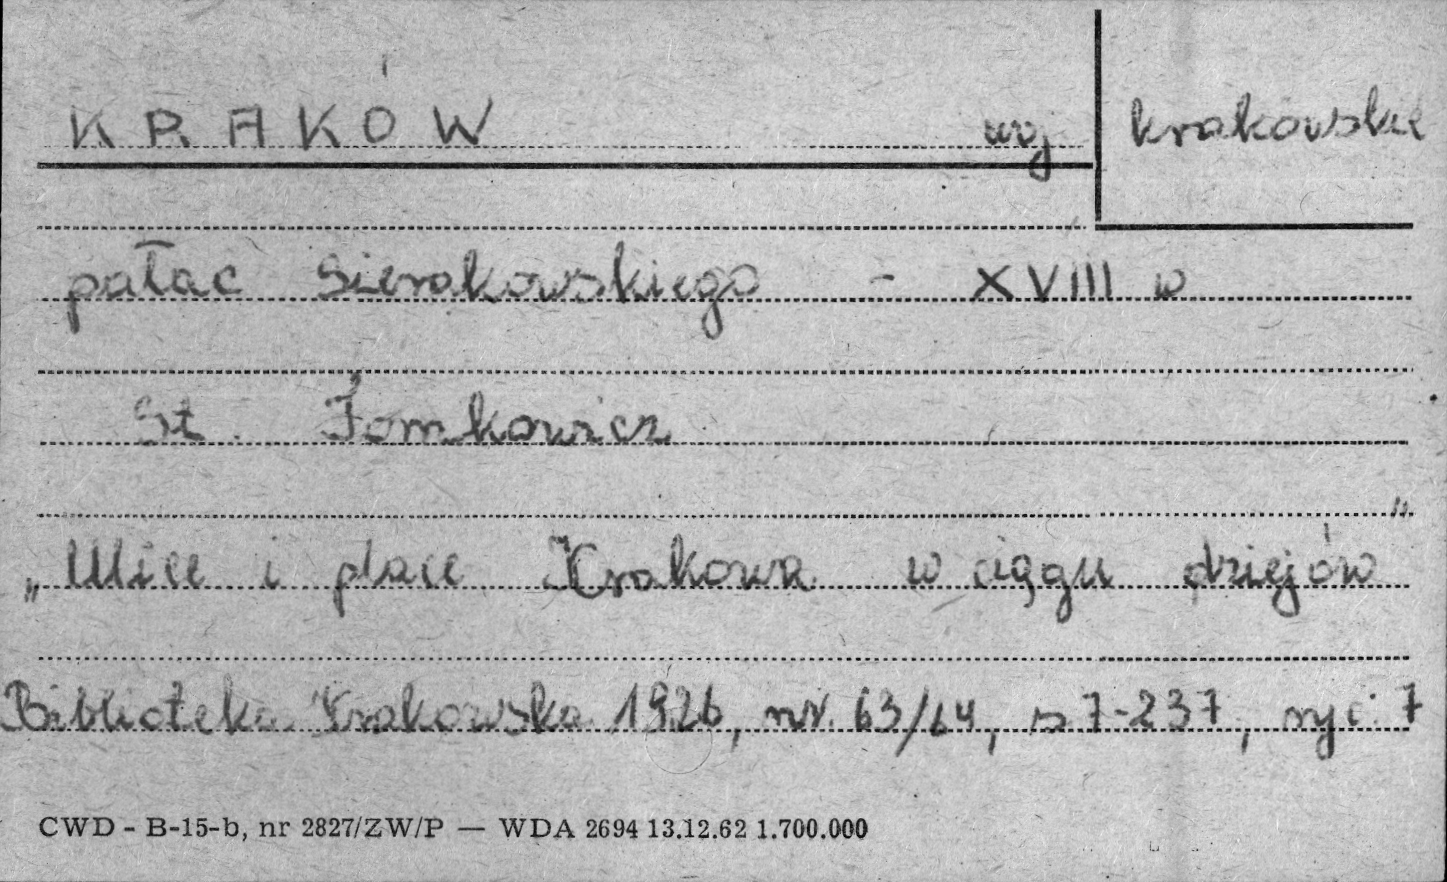 KRAKÓW woj krakowskie
pałac Sierakowskiego - XVIII w
St. Tomkowicz
„Ulice i place Krakowa w ciągu dziejów”
Biblioteka Krakowska 1926, nr. 63/64, s 7-237, ryc. 7
CWD - B-15-b, nr 2827/ZW/P — WDA 2694 13.12.62 1.700.000